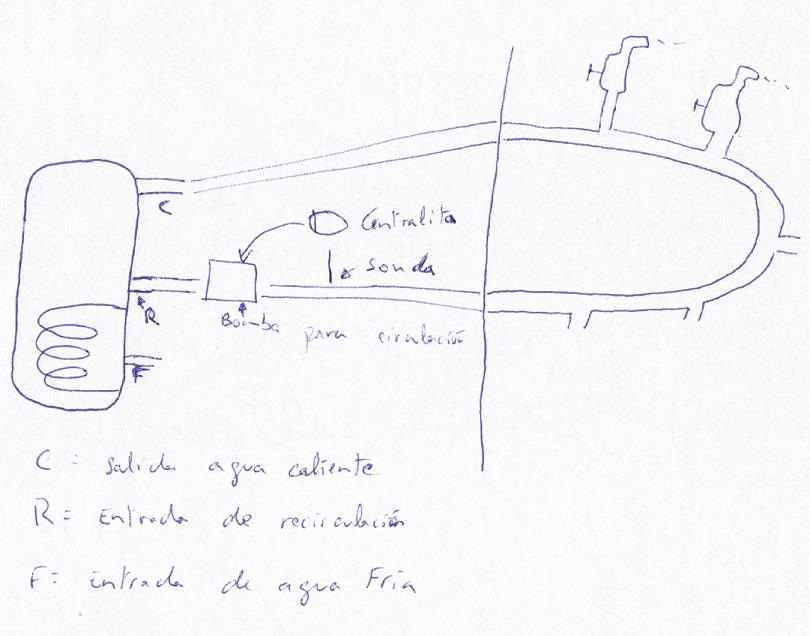 C
Centralita
sonda
R
Bomba para circulación
F
C = salida agua caliente
R = Entrada de recirculación
F = entrada de agua Fría